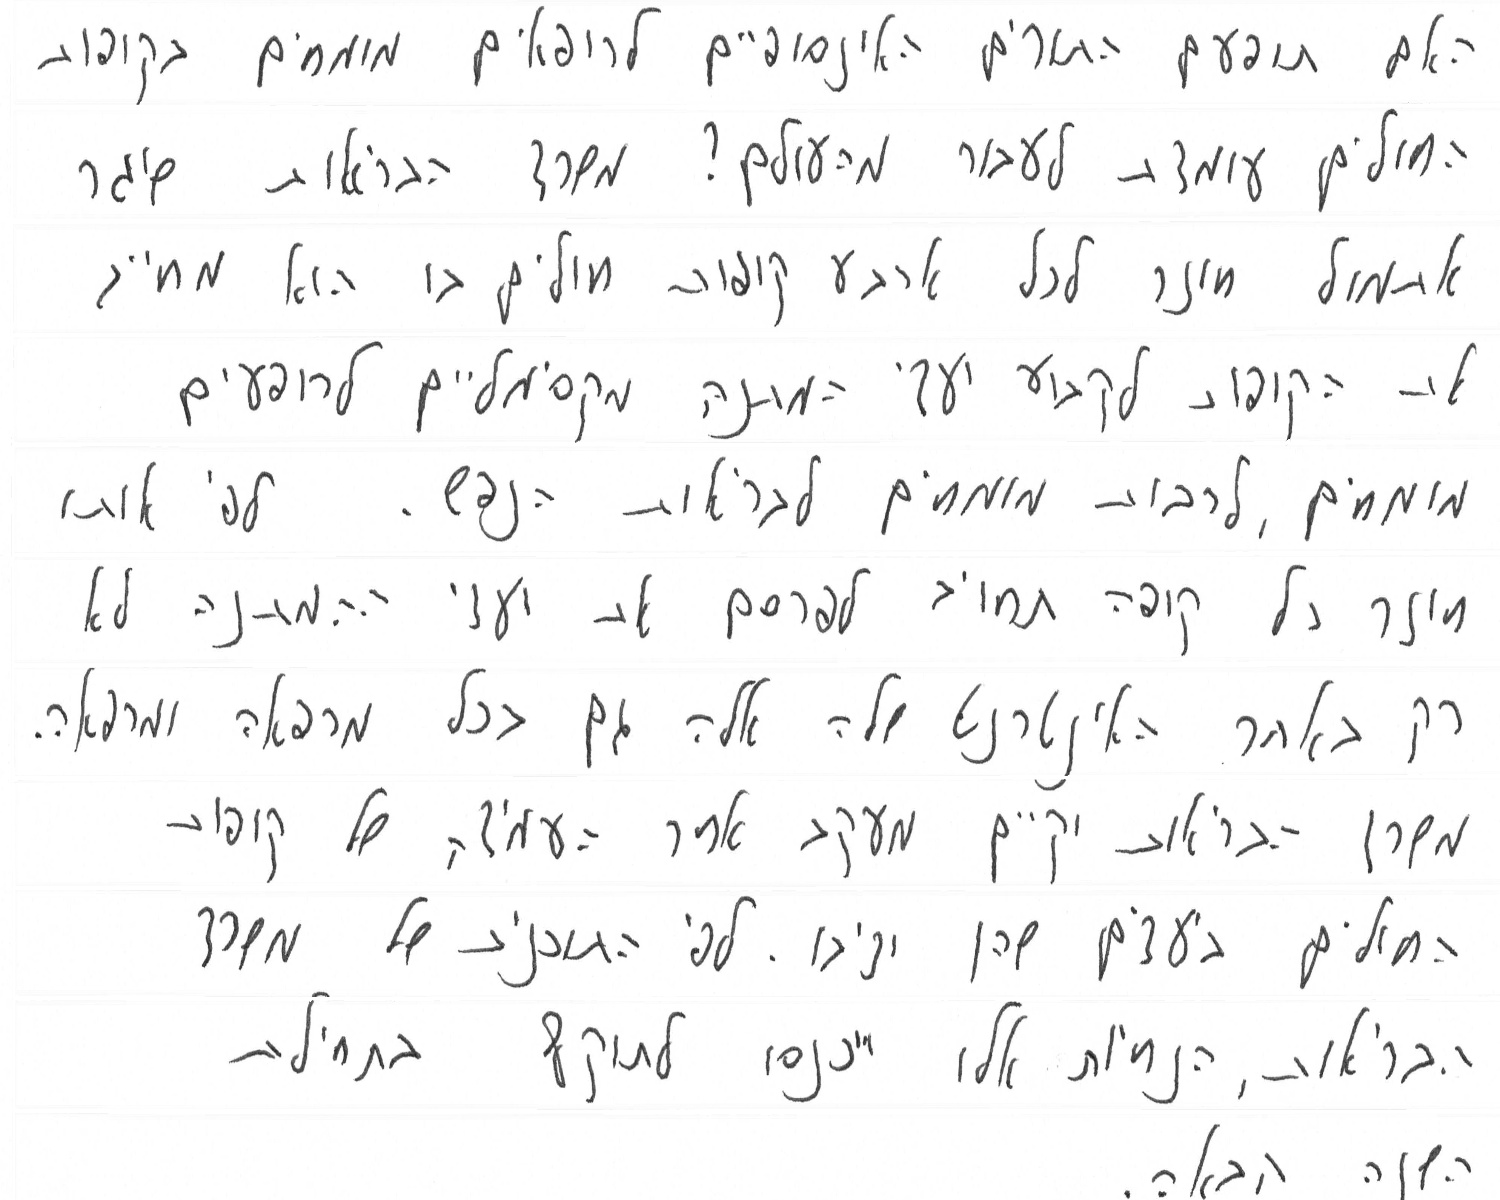 האם תופעת התורים האינסופיים לרופאים מומחים בקופות
החולים עומדת לעבור מהעולם? משרד הבריאות שיגר
אתמול חוזר לכל ארבע קופות חולים בו הוא מחייב
את הקופות לקבוע יעדי המתנה מקסימליים לרופעים
מומחים, לרבות מומחים לבריאות הנפש. לפי אותו
חוזר כל קופה תחויב לפרסם את יעדי ההמתנה לא
רק באתר האינטרנט שלה אלה גם בכל מרפאה ומרפאה.
משרד הבריאות יקיים מעקב אחר העמידה של קופות
החולים ביעדים שהן יציבו. לפי התוכנית של משרד
הבריאות, הנחיות אלו ייכנסו לתוקף בתחילת
השנה הבאה.